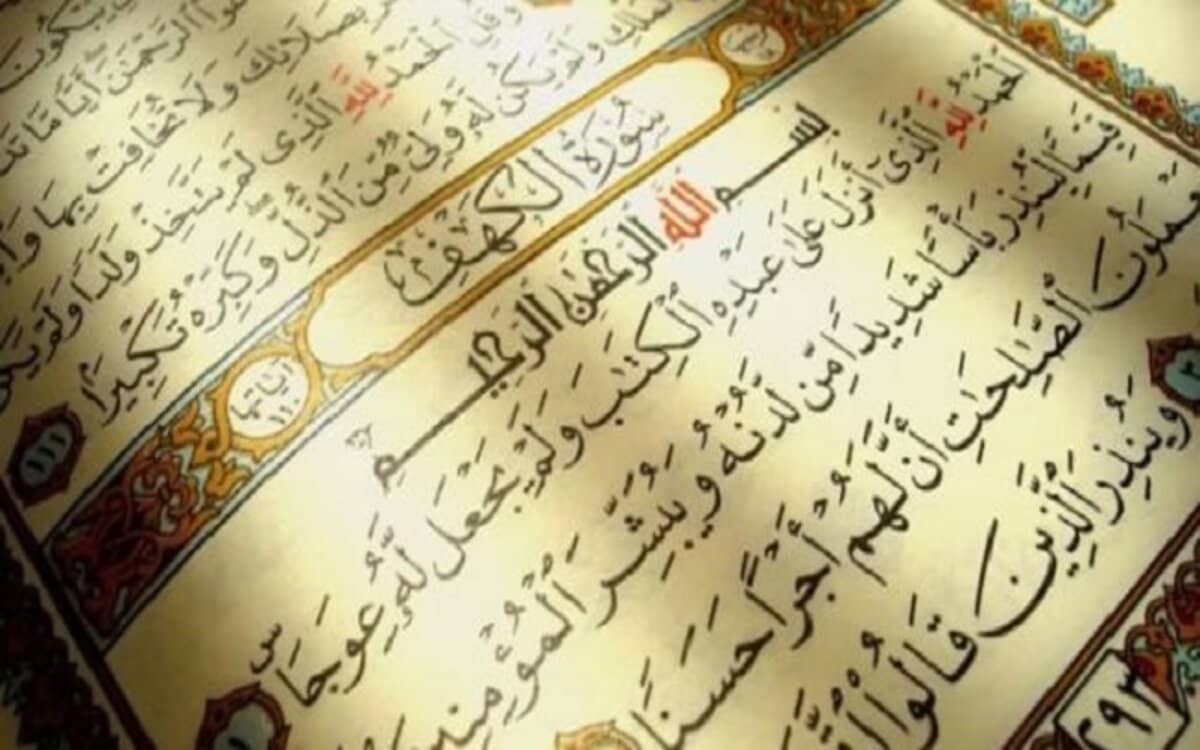 ٱلرَّحْمَٰنَ أَيًّا مَّا
بِصَلَاتِكَ وَلَا تُخَافِتْ بِهَا
وَقُلِ ٱلْحَمْدُ لِلَّهِ ٱلَّذِى لَمْ يَتَّخِذْ وَلَدًا وَلَمْ
ٱلْمُلْكِ وَلَمْ يَكُن لَّهُۥ وَلِىٌّ مِّنَ ٱلذُّلِّ وَكَبِّرْهُ تَكْبِيرًا ١١١
سُورَةُ الكَهْفِ
آيَاتُهَا ١١٠
بِسْمِ اللَّهِ الرَّحْمَٰنِ الرَّحِيمِ
ٱلْحَمْدُ لِلَّهِ ٱلَّذِىٓ أَنزَلَ عَلَىٰ عَبْدِهِ ٱلْكِتَٰبَ وَلَمْ يَجْعَل لَّهُۥ عِوَجَاۜ ١
قَيِّمًا لِّيُنذِرَ بَأْسًا شَدِيدًا مِّن لَّدُنْهُ وَيُبَشِّرَ ٱلْمُؤْمِنِينَ
يَعْمَلُونَ ٱلصَّٰلِحَٰتِ أَنَّ لَهُمْ أَجْرًا حَسَنًا
وَيُنذِرَ ٱلَّذِينَ قَالُوا۟
٢٩٣